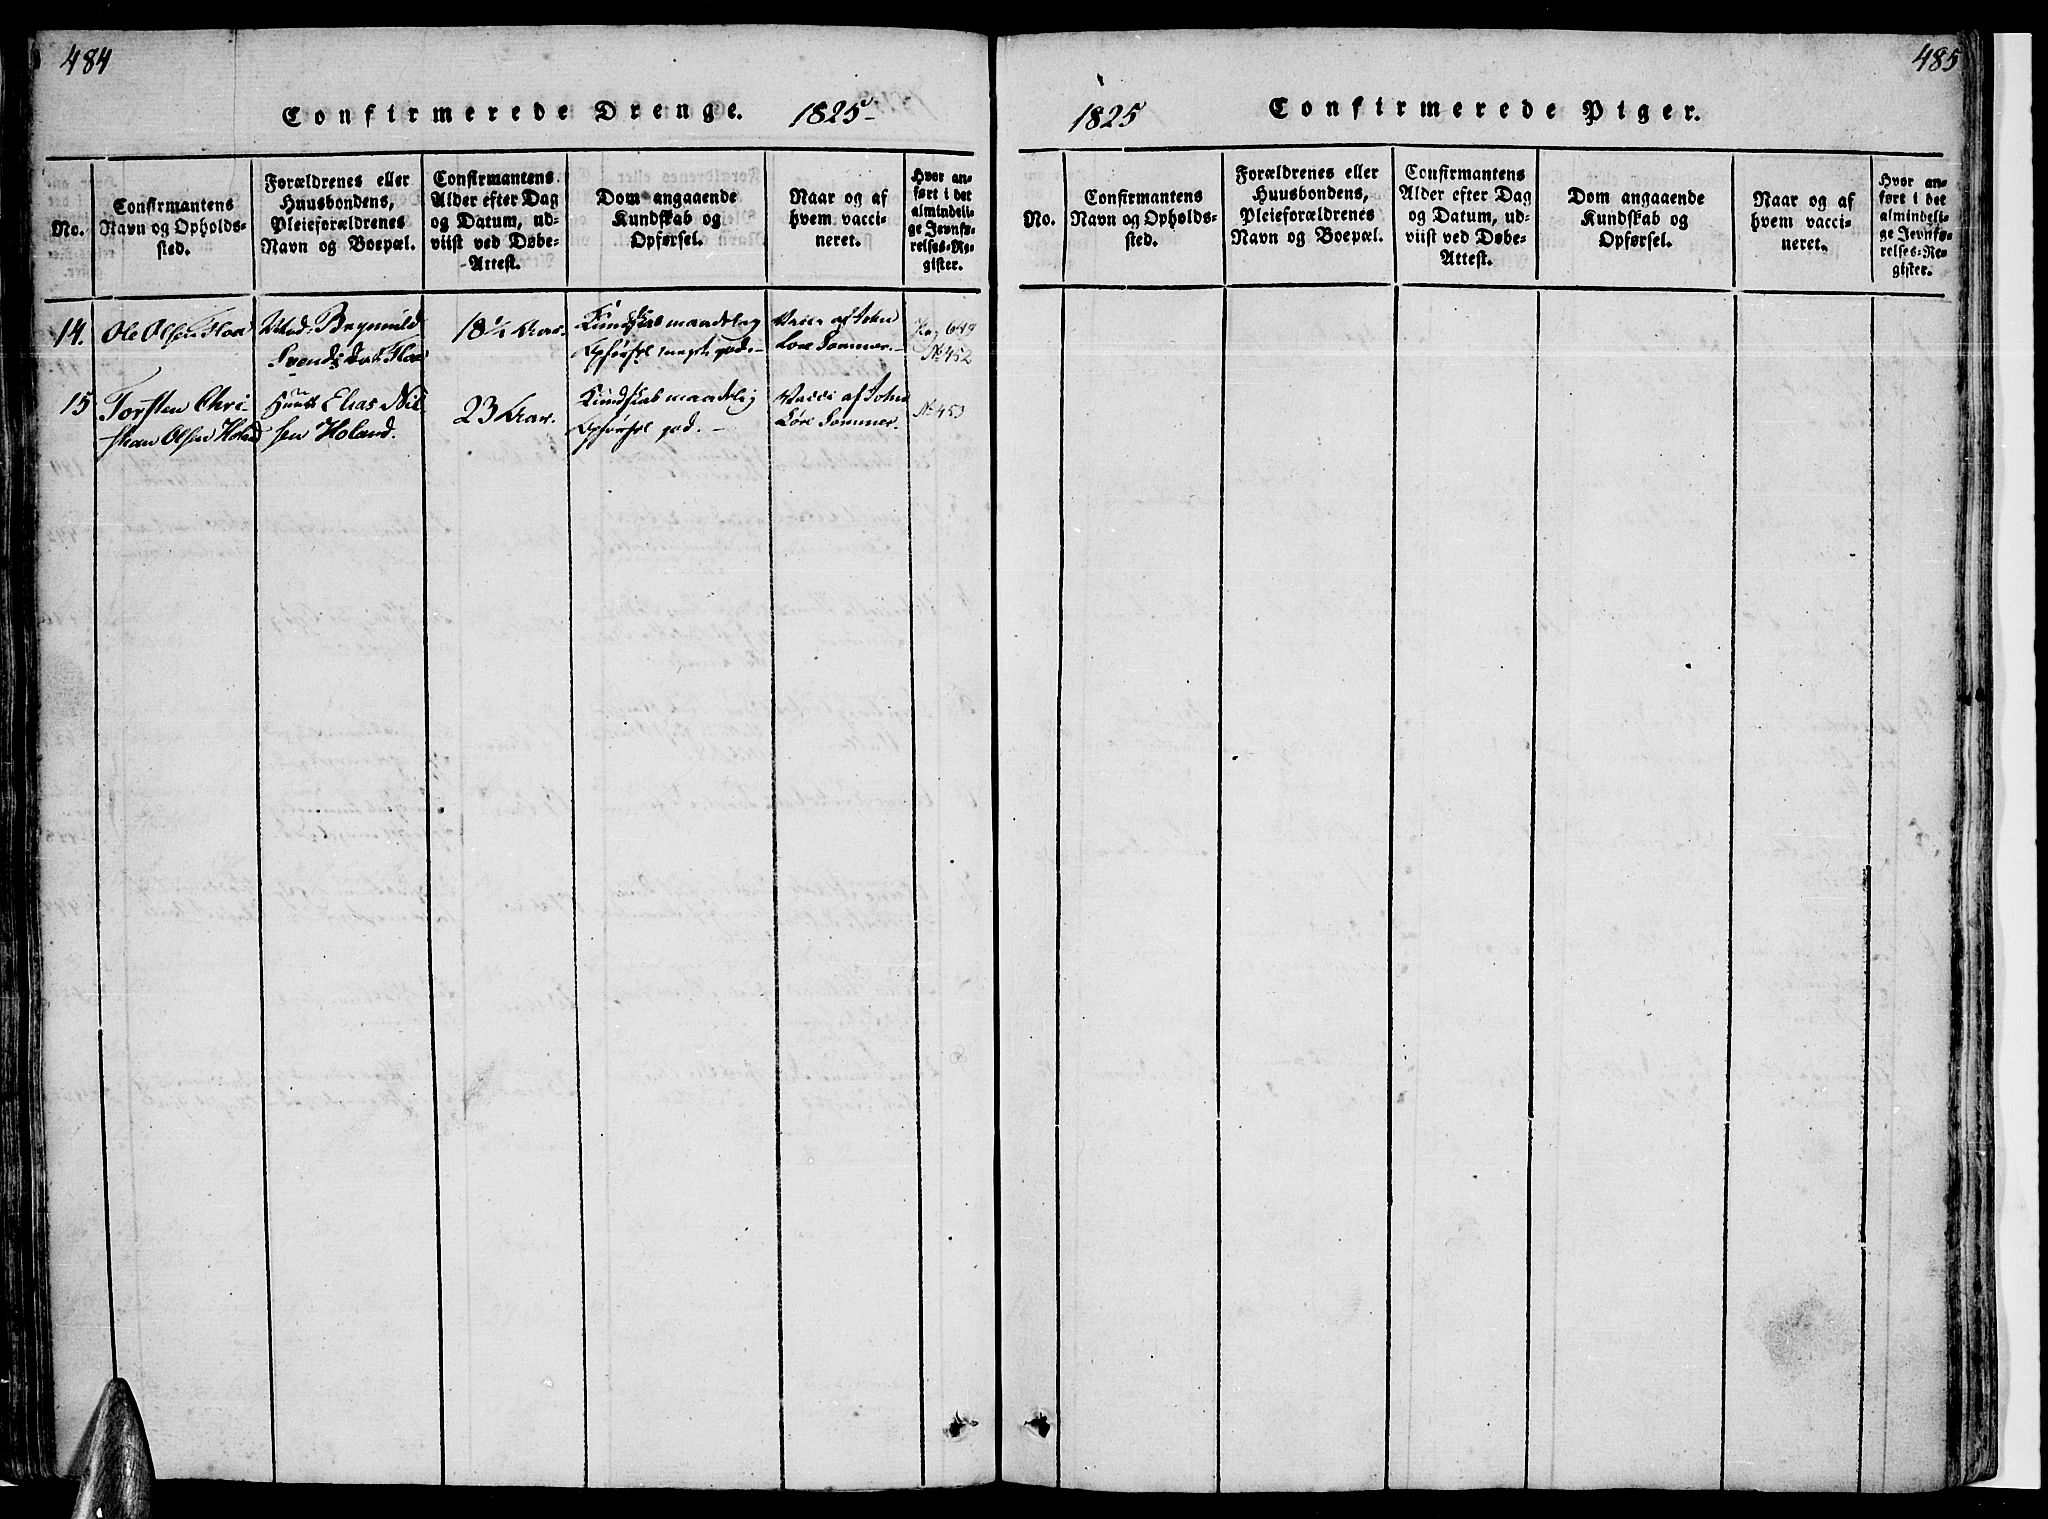 484
Confirmerede Drenge. 1825
No.
Confirmantens
Navn og Opholds-
sted.
Forældrenes eller
Huusbondens,
Pleieforældrenes
Navn og Boepæl.
Confirmantens
Alder efter Dag
og Datum, ud-
viist ved Døbe-
Attest.
Dom angaaende
Kundskab og
Opførsel.
Naar og af
hvem vacci-
neret.
Hvor an-
ført i det
almindeli-
ge Jevnfø-
relses-Re-
gister.
14.
Ole Olsen Floa
Svends
18½ Aar.
Kundskab maadelig
Opførsel meget god.
Vacc. af John
Lore Sommer.
Pag 649
No 452
15
Torsten Chri-
stian Olsen Holand
Elias Nil
sen Holand.
23 Aar.
Kundskab maadelig
Opførsel god.
Vacci af John
Lore Sommer.
No 453
485
1825 Confirmerede Piger.
No.
Confirmantens
Navn og Opholds-
sted.
Forældrenes eller
Huusbondens,
Pleieforældrenes
Navn og Boepæl.
Confirmantens
Alder efter Dag
og Datum, ud-
viist ved Døbe-
Attest.
Dom angaaende
Kundskab og
Opførsel.
Naar og af
hvem vacci-
neret.
Hvor an-
ført i det
almindeli-
ge Jevnfø-
relses-Re-
gister.